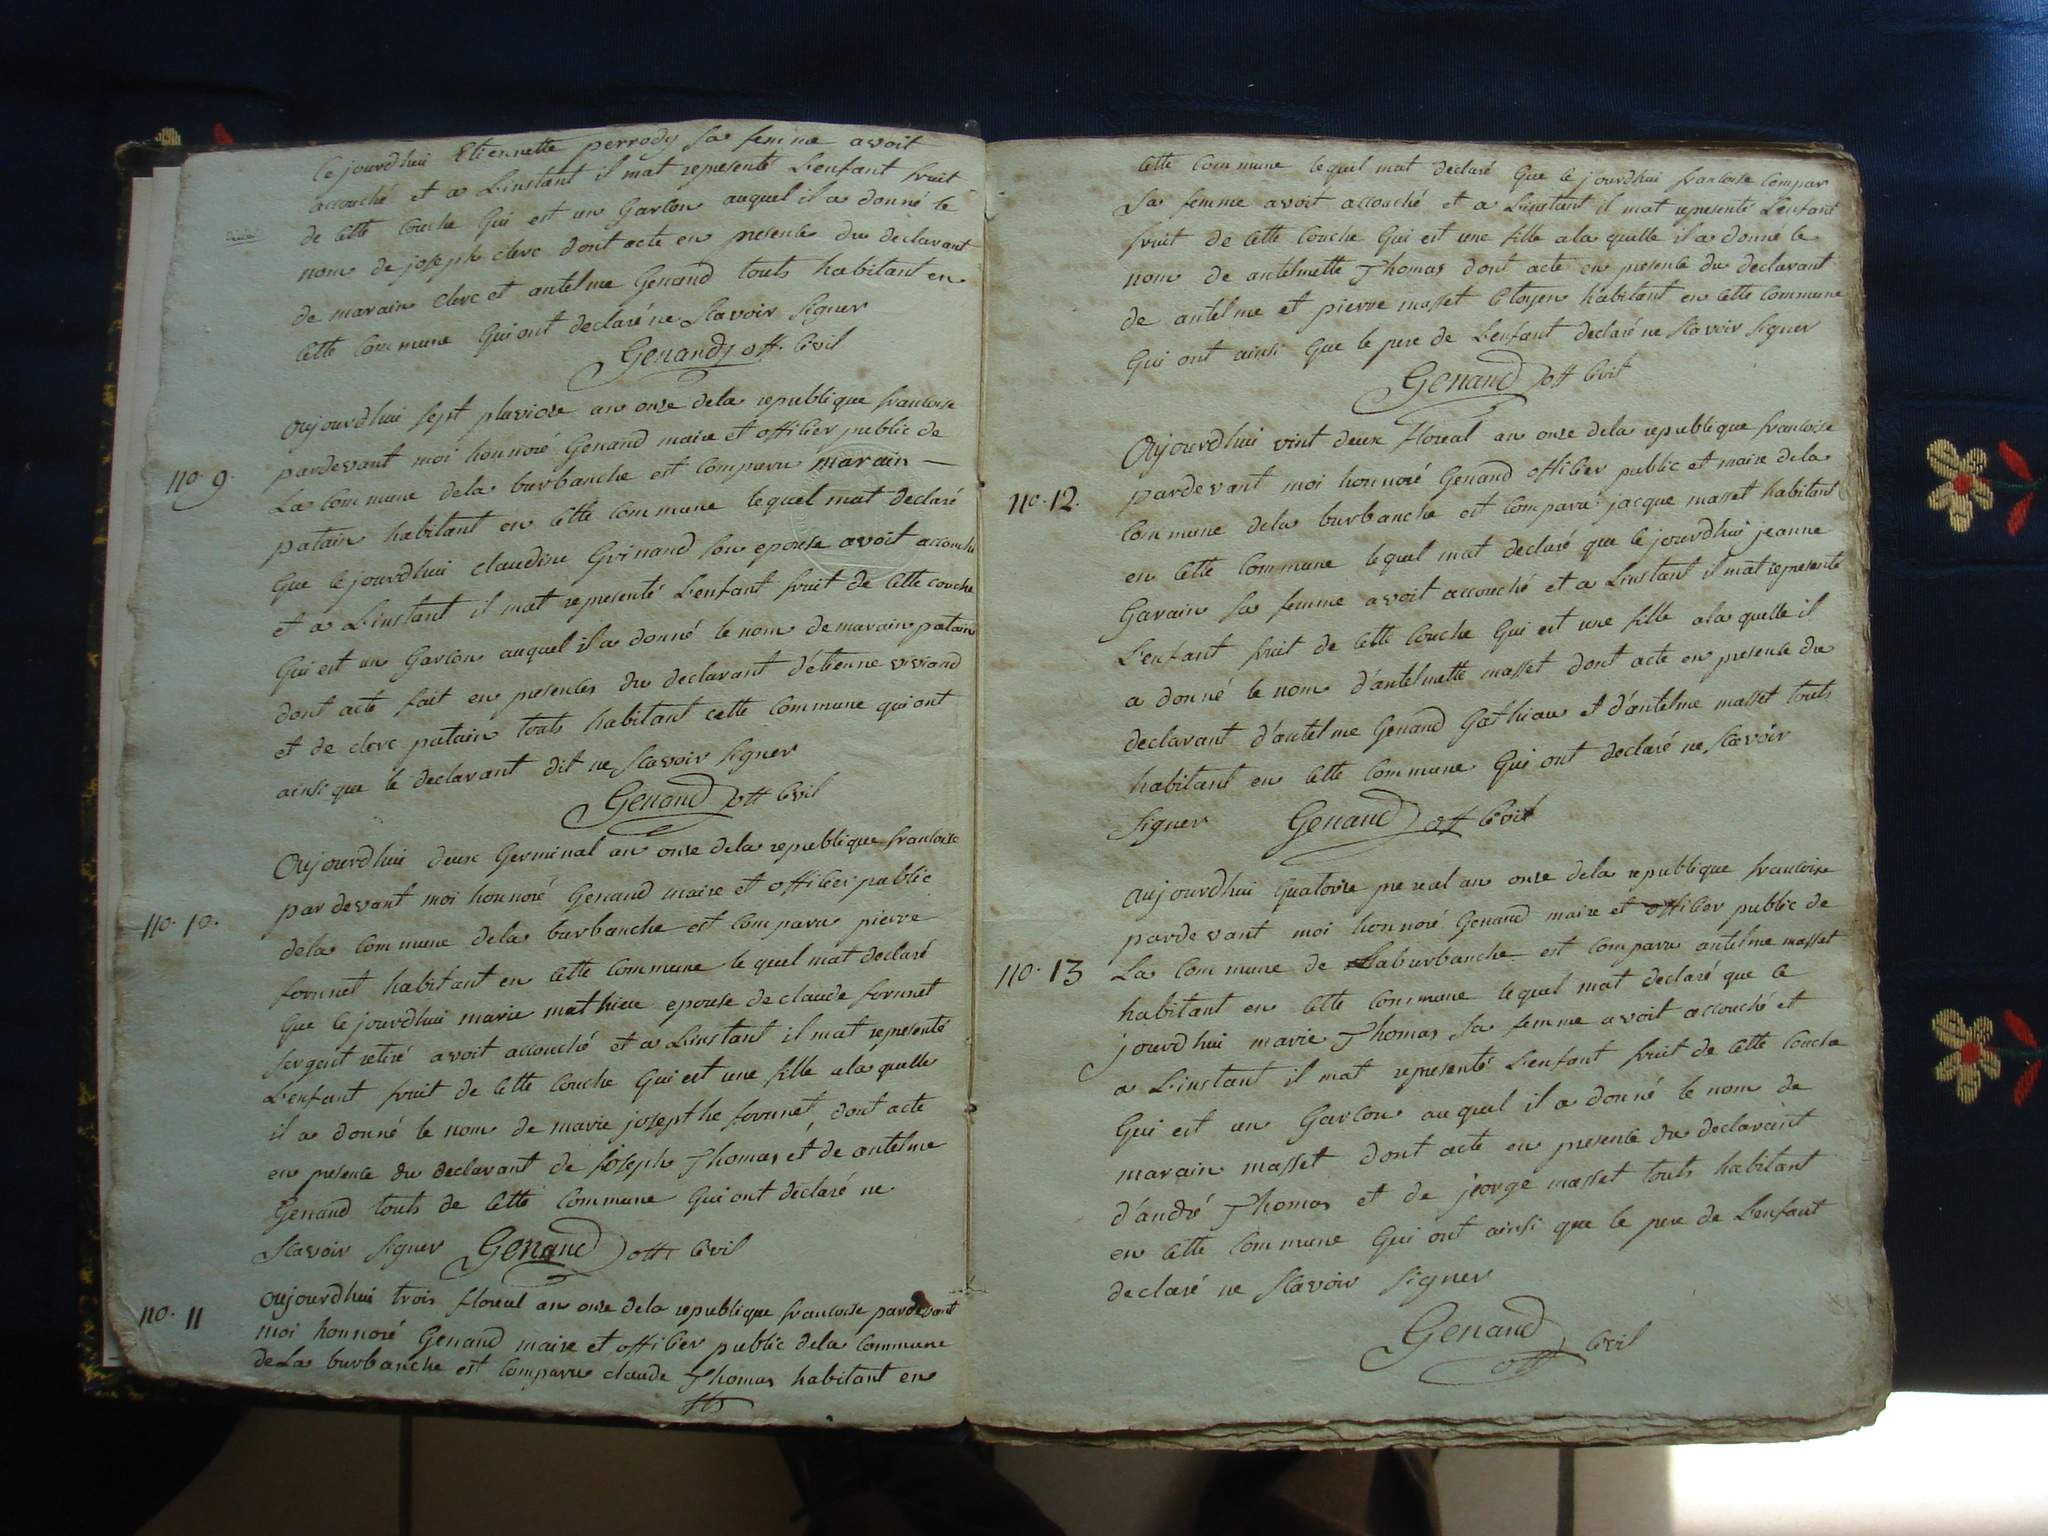 ce jourdhui Etiennette perrody sa femme avoit
accouché et a Linstant il mat representé Lenfant fruit
de cette couche Qui est un Garcon auquel il a donné le
nom de joseph clerc dont acte en presence du declarant
de marain clerc et antelme Genand touts habitant en
cette commune Qui ont declaré ne scavoir signer
Genand off. civil
no. 9.
Oujourdhui sept pluviose an onze dela republique francoise
pardevant moi honnoré Genand maire et officier public de
La commune dela burbanche est comparu marain
patain habitant en cette commune lequel mat declaré
Que cejourdhui claudine Grinand son epouse avoit accouché
et a Linstant il mat representé Lenfant fruit de cette couche
Qui est un Garcon auquel il a donné le nom de marain patain
dont acte fait en presences du declarant d'étienne viviand
et de clerc patain touts habitant cette commune qui ont
ainsi que le declarant dit ne scavoir signer
Genand off civil
no. 10.
Oujourdhui deux Germinal an onze dela republique francoise
par devant moi honnoré Genand maire et officier public
dela commune dela burbanche est comparu pierre
forunet habitant en cette commune le quel mat declaré
Que cejourdhui marie mathieu epouse de claude forunet
sergent retiré avoit accouché et a Linstant il mat representé
Lenfant fruit de cette couche Qui est une fille ala quelle
il a donné le nom de marie josepthe forunet, dont acte
en presence du declarant de joseph Thomas et de antelme
Genand touts de cette commune Qui ont declaré ne
scavoir signer Genand off civil
no. 11
Oujourdhui trois floreal an onze dela republique francoise pardevant
moi honnoré Genand maire et officier public dela commune
deLa burbanche est comparu claude Thomas habitant en
cette commune lequel mat declaré Que ce jourdhui francoise compar
sa femme avoit accouché et a Linstant il mat representé Lenfant
fruit de cette couche Qui est une fille ala quelle il a donné le
nom de antelmette Thomas dont acte en presence du declarant
de antelme et pierre masset citoyen habitant en cette commune
Qui ont ainsi Que le pere de Lenfant declaré ne scavoir signer
Genand off civil
no. 12.
Oujourdhui vint deux floreal an onze dela republique francoise
pardevant moi honnoré Genand officier public et maire dela
commune dela burbanche est comparu jacque masset habitant
en cette commune lequel mat declaré que ce jourdhui jeanne
Garain sa femme avoit accouché et a Linstant il mat representé
Lenfant fruit de cette couche Qui est une fille ala quelle il
a donné le nom d'antelmette masset dont acte en presence du
declarant d'antelme Genand Gathiau et d'antelme masset touts
habitant en cette commune Qui ont declaré ne scavoir
signer Genand off civil
no. 13
Oujourdhui Quatorze pre real an onze dela republique francoise
pardevant moi honnoré Genand maire et officier public de
La commune de Laburbanche est comparu antelme masset
habitant en cette commune lequel mat declaré que ce
jourdhui marie Thomas sa femme avoit accouché et
a Linstant il mat representé Lenfant fruit de cette couche
Qui est un Garcon au quel il a donné le nom de
marain masset dont acte en presence du declarant
d'andré Thomas et de jeorge masset touts habitant
en cette commune Qui ont ainsi que le pere de Lenfant
declaré ne scavoir signer
Genand
off civil